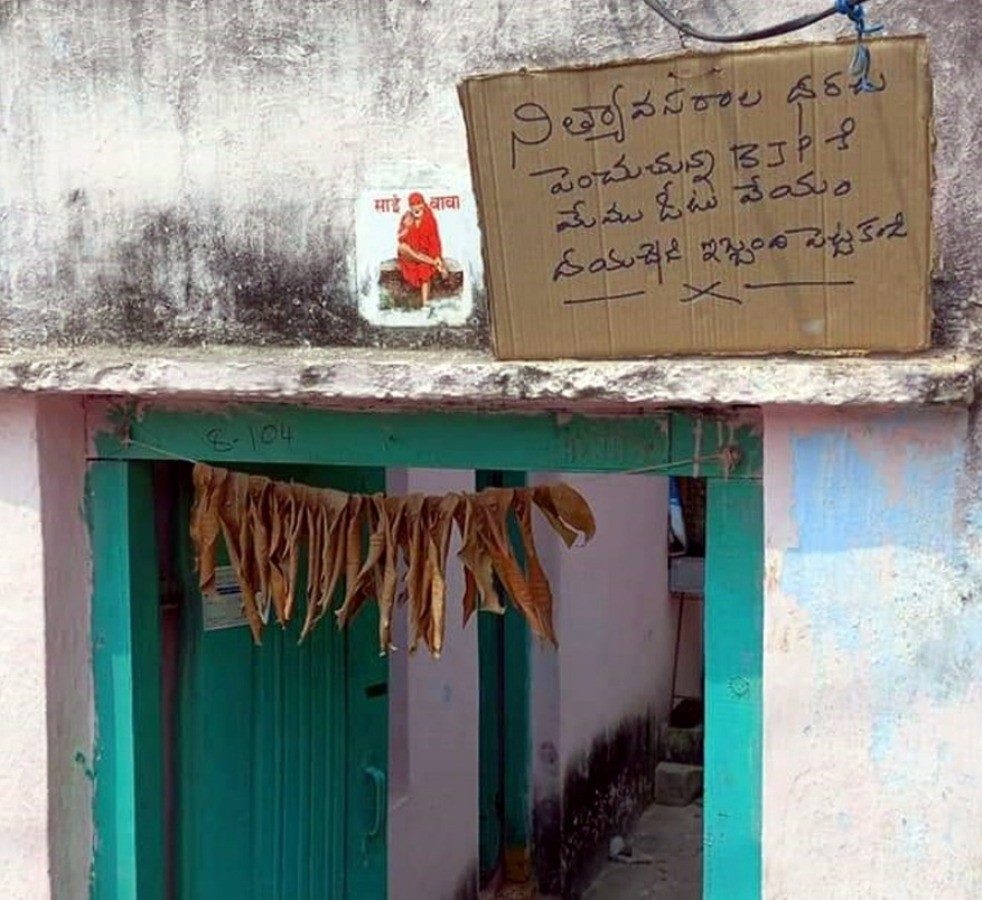 సాई बाबा
నిత్యావసరాల ధరలు
పెంచుతున్న BJP కి
మేము ఓటు వేయం
దయచేసి ఇబ్బంది పెట్టకండి
8-104